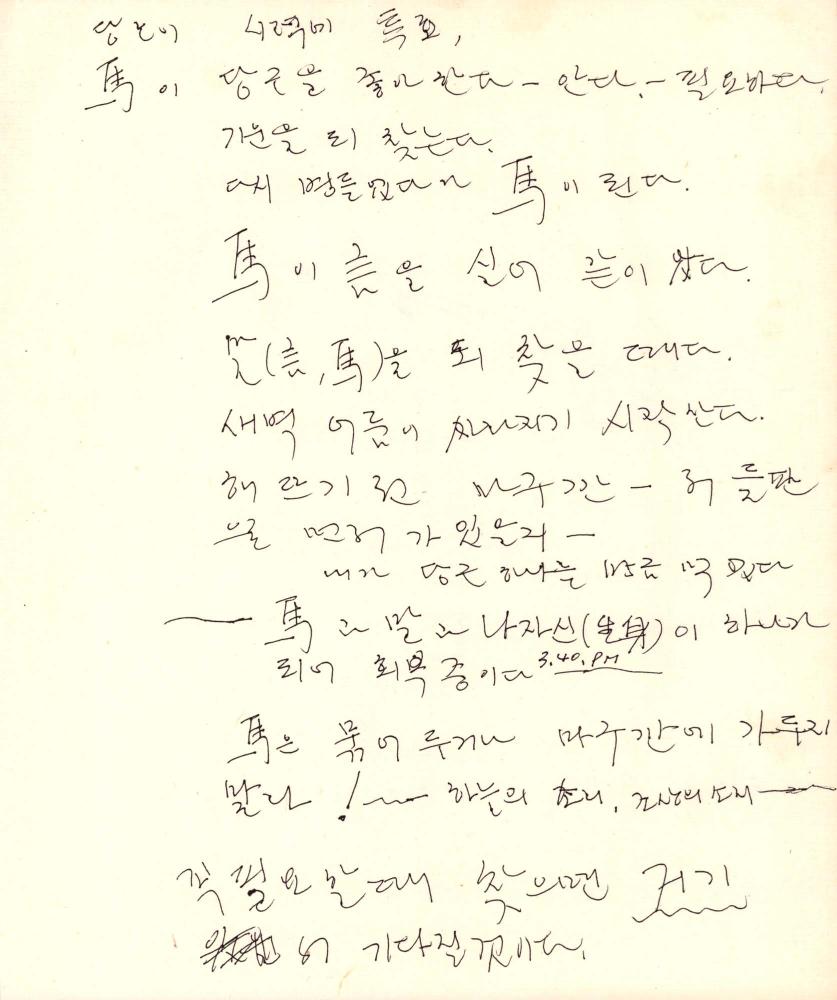 당근이 시력에 특효,
馬이 당근을 좋아한다 - 안다. - 필요하다.
기운을 되 찾는다.
다시 병들었다가 馬이 된다.
馬이 름을 실어 같이 왔다.
말(름, 馬)을 되 찾을 때다.
새벽 어름이 사라지기 시작한다.
해 뜨기 전 마구간 - 허 들판
으로 먼저 가 있을지 -
내가 당근 하나를 방금 먹었다
馬과 말과 나자신(生身)이 하나가
되어 회복 중이다 3.40.PM
馬은 묶어 두거나 마구간에 가두지
말라! 하늘의 소리, 조상의 소리
꼭 필요할 때 찾으면 거기
서 기다릴 것이다.